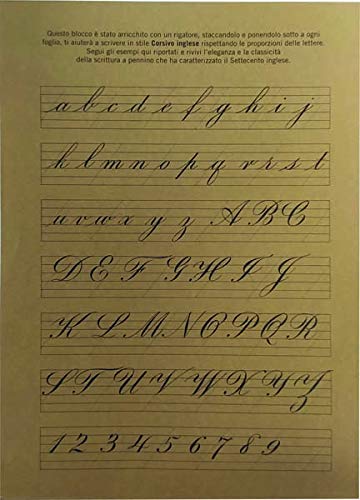 Questo blocco è stato arricchito con un rigatore, staccandolo e ponendolo sotto a ogni
foglio, ti aiuterà a scrivere in stile Corsivo inglese rispettando le proporzioni delle lettere.
Segui gli esempi qui riportati e rivivi l'eleganza e la classicità
della scrittura a pennino che ha caratterizzato il Settecento inglese.
a b c d e f g h i j
k l m n o p q r s t
u v w x y z A B C
D E F G H I J
K L M N O P Q R
S T U V W X Y Z
1 2 3 4 5 6 7 8 9